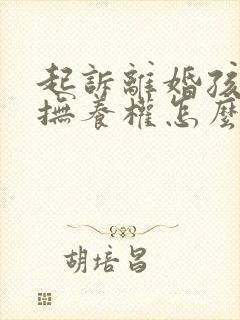 起訴離婚孩
撫養權怎麼
胡培昌